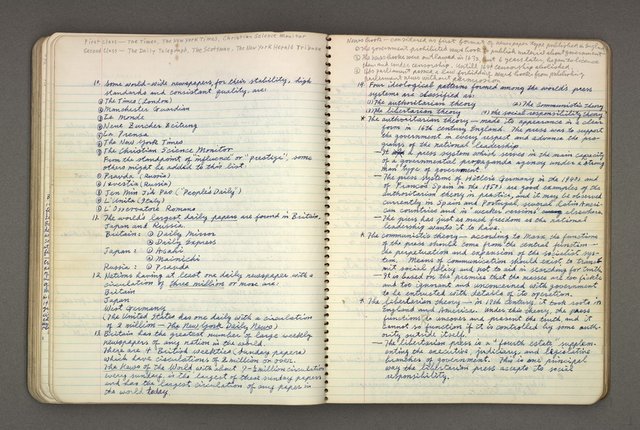 First Class — The Times, The New York Times, Christian Science Monitor
Second Class — The Daily Telegraph, The Scotsman, The New York Herald Tribune
10. Some world-wide newspapers, for their stability, high
standards and consistent quality, are:
The Times (London)
Manchester Guardian
Le Monde
Neue Zurcher Zeitung
La Prensa
The New York Times
The Christian Science Monitor
From the standpoint of influence or "prestige", some
others might be added to this list:
Pravda (Russia)
Izvestia (Russia)
Jen Min Jih Pao ("People's Daily")
L'Unita (Italy)
L'Osservatore Romano
11. The world's largest daily papers are found in Britain,
Japan and Russia
Britain: Daily Mirror
Daily Express
Japan: Asahi
Mainichi
Russia: Pravda
12. Nations having at least one daily newspaper with a
circulation of three million or more are:
Britain
Japan
West Germany
The United States has one daily with a circulation
of 2 million — The New York Daily News)
13. Britain has the greatest number of large weekly
newspapers of any nation in the world.
There are British weeklies (Sunday papers)
which have circulations of 2 million or over.
The News of the World with about million circulation
every Sunday, is the largest of these Sunday papers
and has the largest circulation of any paper in
the world today.
News Book — considered as first format of newspaper type published in England
The government prohibited News Book to publish material about government
News books were outlawed in 1632, but 6 years later, began to license
them and under censorship, until 1641 censorship abolished.
parliament passed a law forbidding news book from publishing
parliament news without permission
14. Four ideological patterns formed among the world's press
systems are classified as:
(1) The authoritarian theory (2) The communistic theory
(3) The libertarian theory (4) The social responsibility theory
* The authoritarian theory — made its appearance in a clear
form in 16th century England. The press was to support
the government in every respect and advance the pro-
grams of the national leadership.
— It is a press system which serves in the main capacity
of a governmental propaganda agency under a strong
man type of government.
— The press systems of Hitler's Germany in the 1940s and
of Franco's Spain in the 1950s are good examples of the
authoritarian theory in practice, and it may be observed
currently in Spain and Portugal, several Latin Ameri-
can countries and in weaker versions elsewhere
— The press has just as much freedom as the national
leadership wants it to have.
* The communistic theory — according to Marx the functions
of the press should come from the central function —
the perpetuation and expansion of the socialist sys-
tem. Means of communication should exist to transmit
social policy and not to aid in searching for truth.
— It is based on the premise that the masses are too fickle
and too ignorant and unconcerned with government
to be entrusted with details of its operation.
* The libertarian theory — in 17th century, it took roots in
England and America. Under this theory, the press
functions to uncover and present the truth and it
cannot so function if it is controlled by some auth-
ority outside itself.
— The libertarian press is a "fourth estate" supplem-
enting the executive, judiciary, and legislative
branches of government. This is one principal
way the libertarian press accepts its social
responsibility.